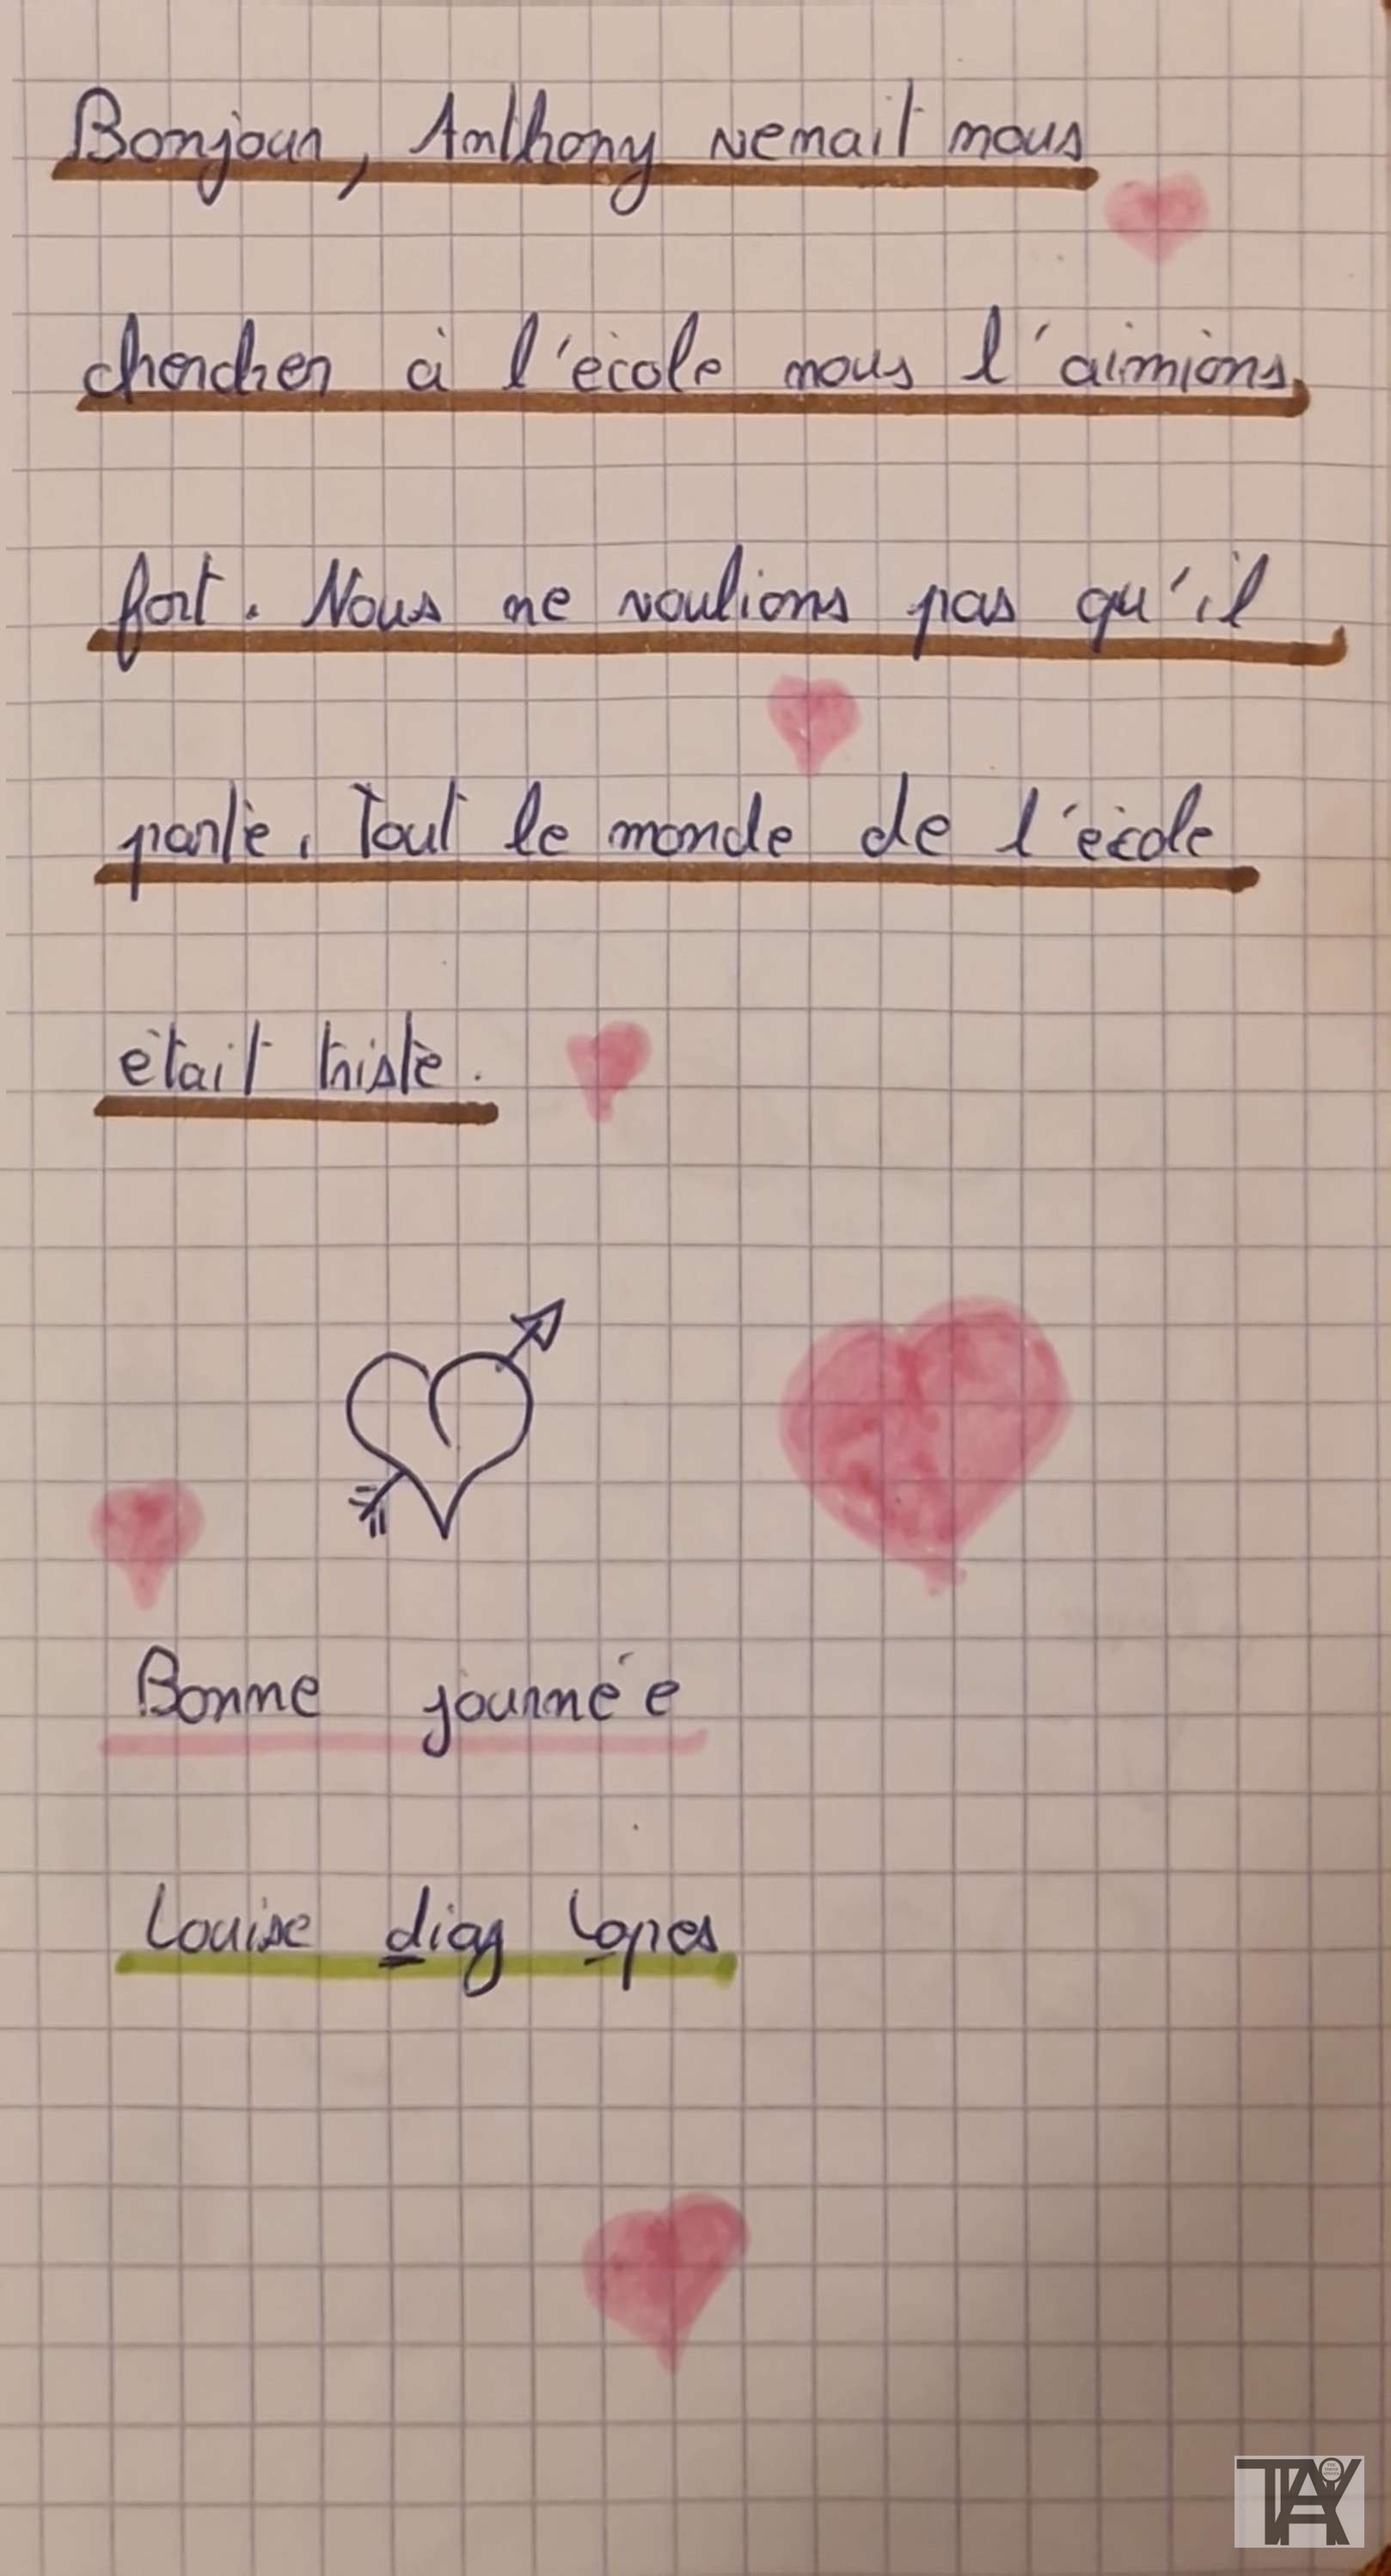 Bonjour, Anthony venait nous
chercher à l'école nous l'aimions
fort. Nous ne voulions pas qu'il
parte. Tout le monde de l'école
était triste.
Bonne journée
Louise diag Lopes
TAY